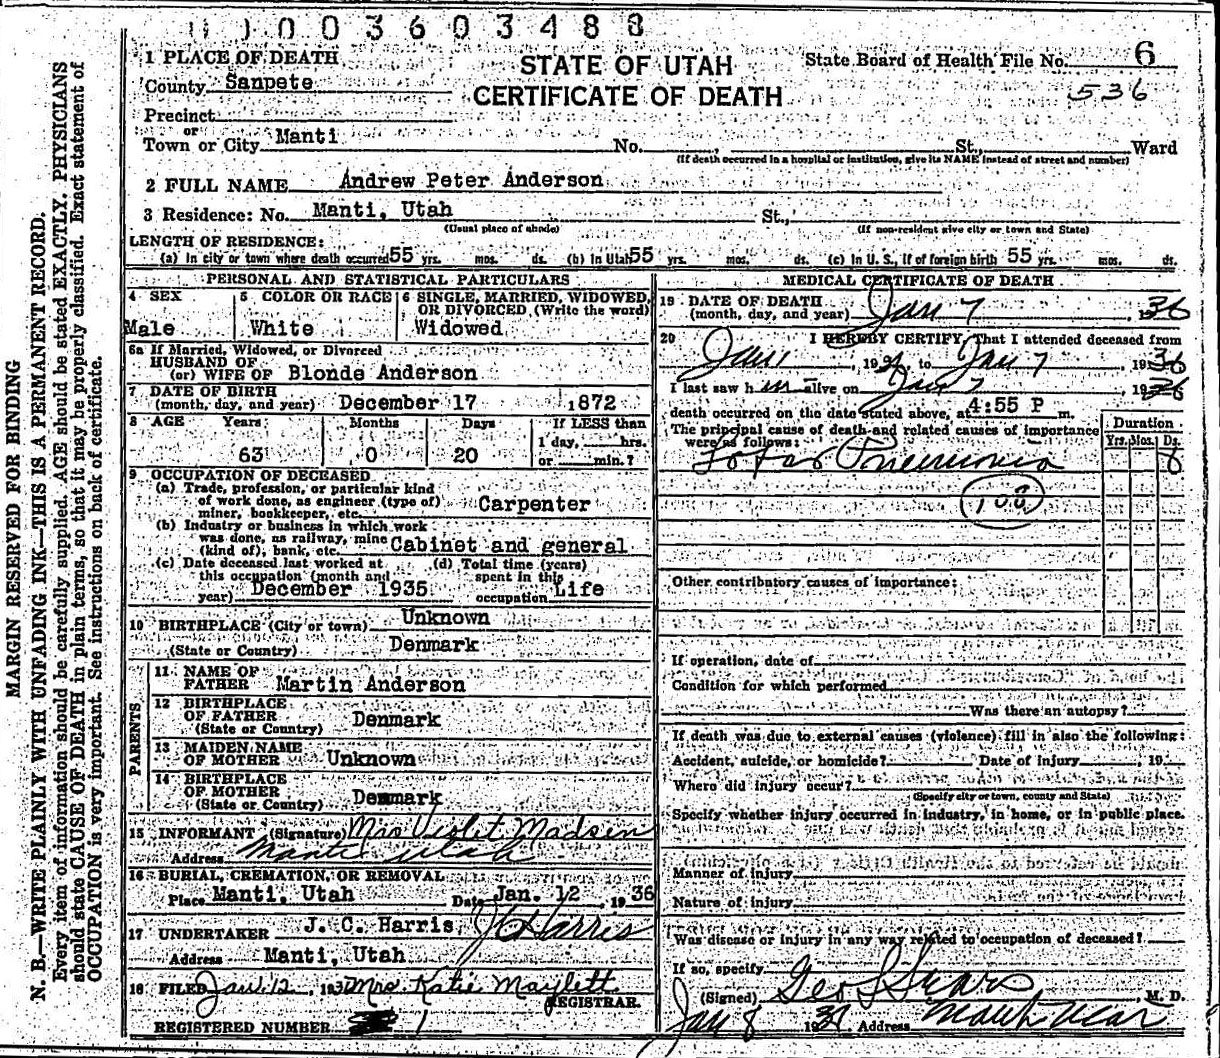 0003603488
1 PLACE OF DEATH
STATE OF UTAH
CERTIFICATE OF DEATH
State Board of Health File No. 6
536
County Sanpete
Precinct
or
Town or City Manti No. , St., Ward
(If death occurred in a hospital or institution, give its NAME instead of street and number)
2 FULL NAME Andrew Peter Anderson
3 Residence: No. Manti, Utah St.,
(Usual place of abode) (If non-resident give city or town and State)
LENGTH OF RESIDENCE:
(a) In city or town where death occurred 55 yrs. mos. ds. (b) In Utah 55 yrs. mos. ds. (c) In U. S., if of foreign birth 55 yrs. mos. ds.
PERSONAL AND STATISTICAL PARTICULARS
4 SEX
Male
5 COLOR OR RACE
White
6 SINGLE, MARRIED, WIDOWED,
OR DIVORCED (Write the word)
Widowed
6a If Married, Widowed, or Divorced
HUSBAND OF
(or) WIFE OF Blonde Anderson
7 DATE OF BIRTH
(month, day, and year) December 17 1872
8 AGE Years Months Days If LESS than
1 day, hrs.
63 0 20 or min.?
9 OCCUPATION OF DECEASED
(a) Trade, profession, or particular kind
of work done, as engineer (type of)
miner, bookkeeper, etc. Carpenter
(b) Industry or business in which work
was done, as railway, mine
(kind of), bank, etc. Cabinet and general
(c) Date deceased last worked at
this occupation (month and
year) December 1935
(d) Total time (years)
spent in this
occupation Life
10 BIRTHPLACE (City or town) Unknown
(State or Country) Denmark
PARENTS
11 NAME OF
FATHER Martin Anderson
12 BIRTHPLACE
OF FATHER Denmark
(State or Country)
13 MAIDEN NAME
OF MOTHER Unknown
14 BIRTHPLACE
OF MOTHER Denmark
(State or Country)
15 INFORMANT (Signature) Mrs Violet Madsen
Address Manti Utah
16 BURIAL, CREMATION, OR REMOVAL
Place Manti, Utah Date Jan. 12, 1936
17 UNDERTAKER J. C. Harris J C Harris
Address Manti, Utah
18 FILED Jan. 12, 193 Mrs. Katie Maylett
REGISTRAR.
REGISTERED NUMBER 1
MEDICAL CERTIFICATE OF DEATH
19 DATE OF DEATH
(month, day, and year) Jan 7, 1936
20 I HEREBY CERTIFY, That I attended deceased from
Jan 1, 19 , to Jan 7, 1936
I last saw him alive on Jan 7, 1936
death occurred on the date stated above, at 4:55 P m.
The principal cause of death and related causes of importance
were as follows:
Duration
Yrs. Mos. Ds.
Lobar Pneumonia 8
108
Other contributory causes of importance:
If operation, date of
Condition for which performed
Was there an autopsy?
If death was due to external causes (violence) fill in also the following:
Accident, suicide, or homicide? Date of injury , 19
Where did injury occur?
(Specify city or town, county and State)
Specify whether injury occurred in industry, in home, or in public place.
Manner of injury
Nature of injury
Was disease or injury in any way related to occupation of deceased?
If so, specify
(Signed) Geo L Sears, M. D.
Jan 8 193 Address Manti Utah
MARGIN RESERVED FOR BINDING
N. B.—WRITE PLAINLY WITH UNFADING INK—THIS IS A PERMANENT RECORD.
Every item of information should be carefully supplied. AGE should be stated EXACTLY. PHYSICIANS
should state CAUSE OF DEATH in plain terms, so that it may be properly classified. Exact statement of
OCCUPATION is very important. See instructions on back of certificate.